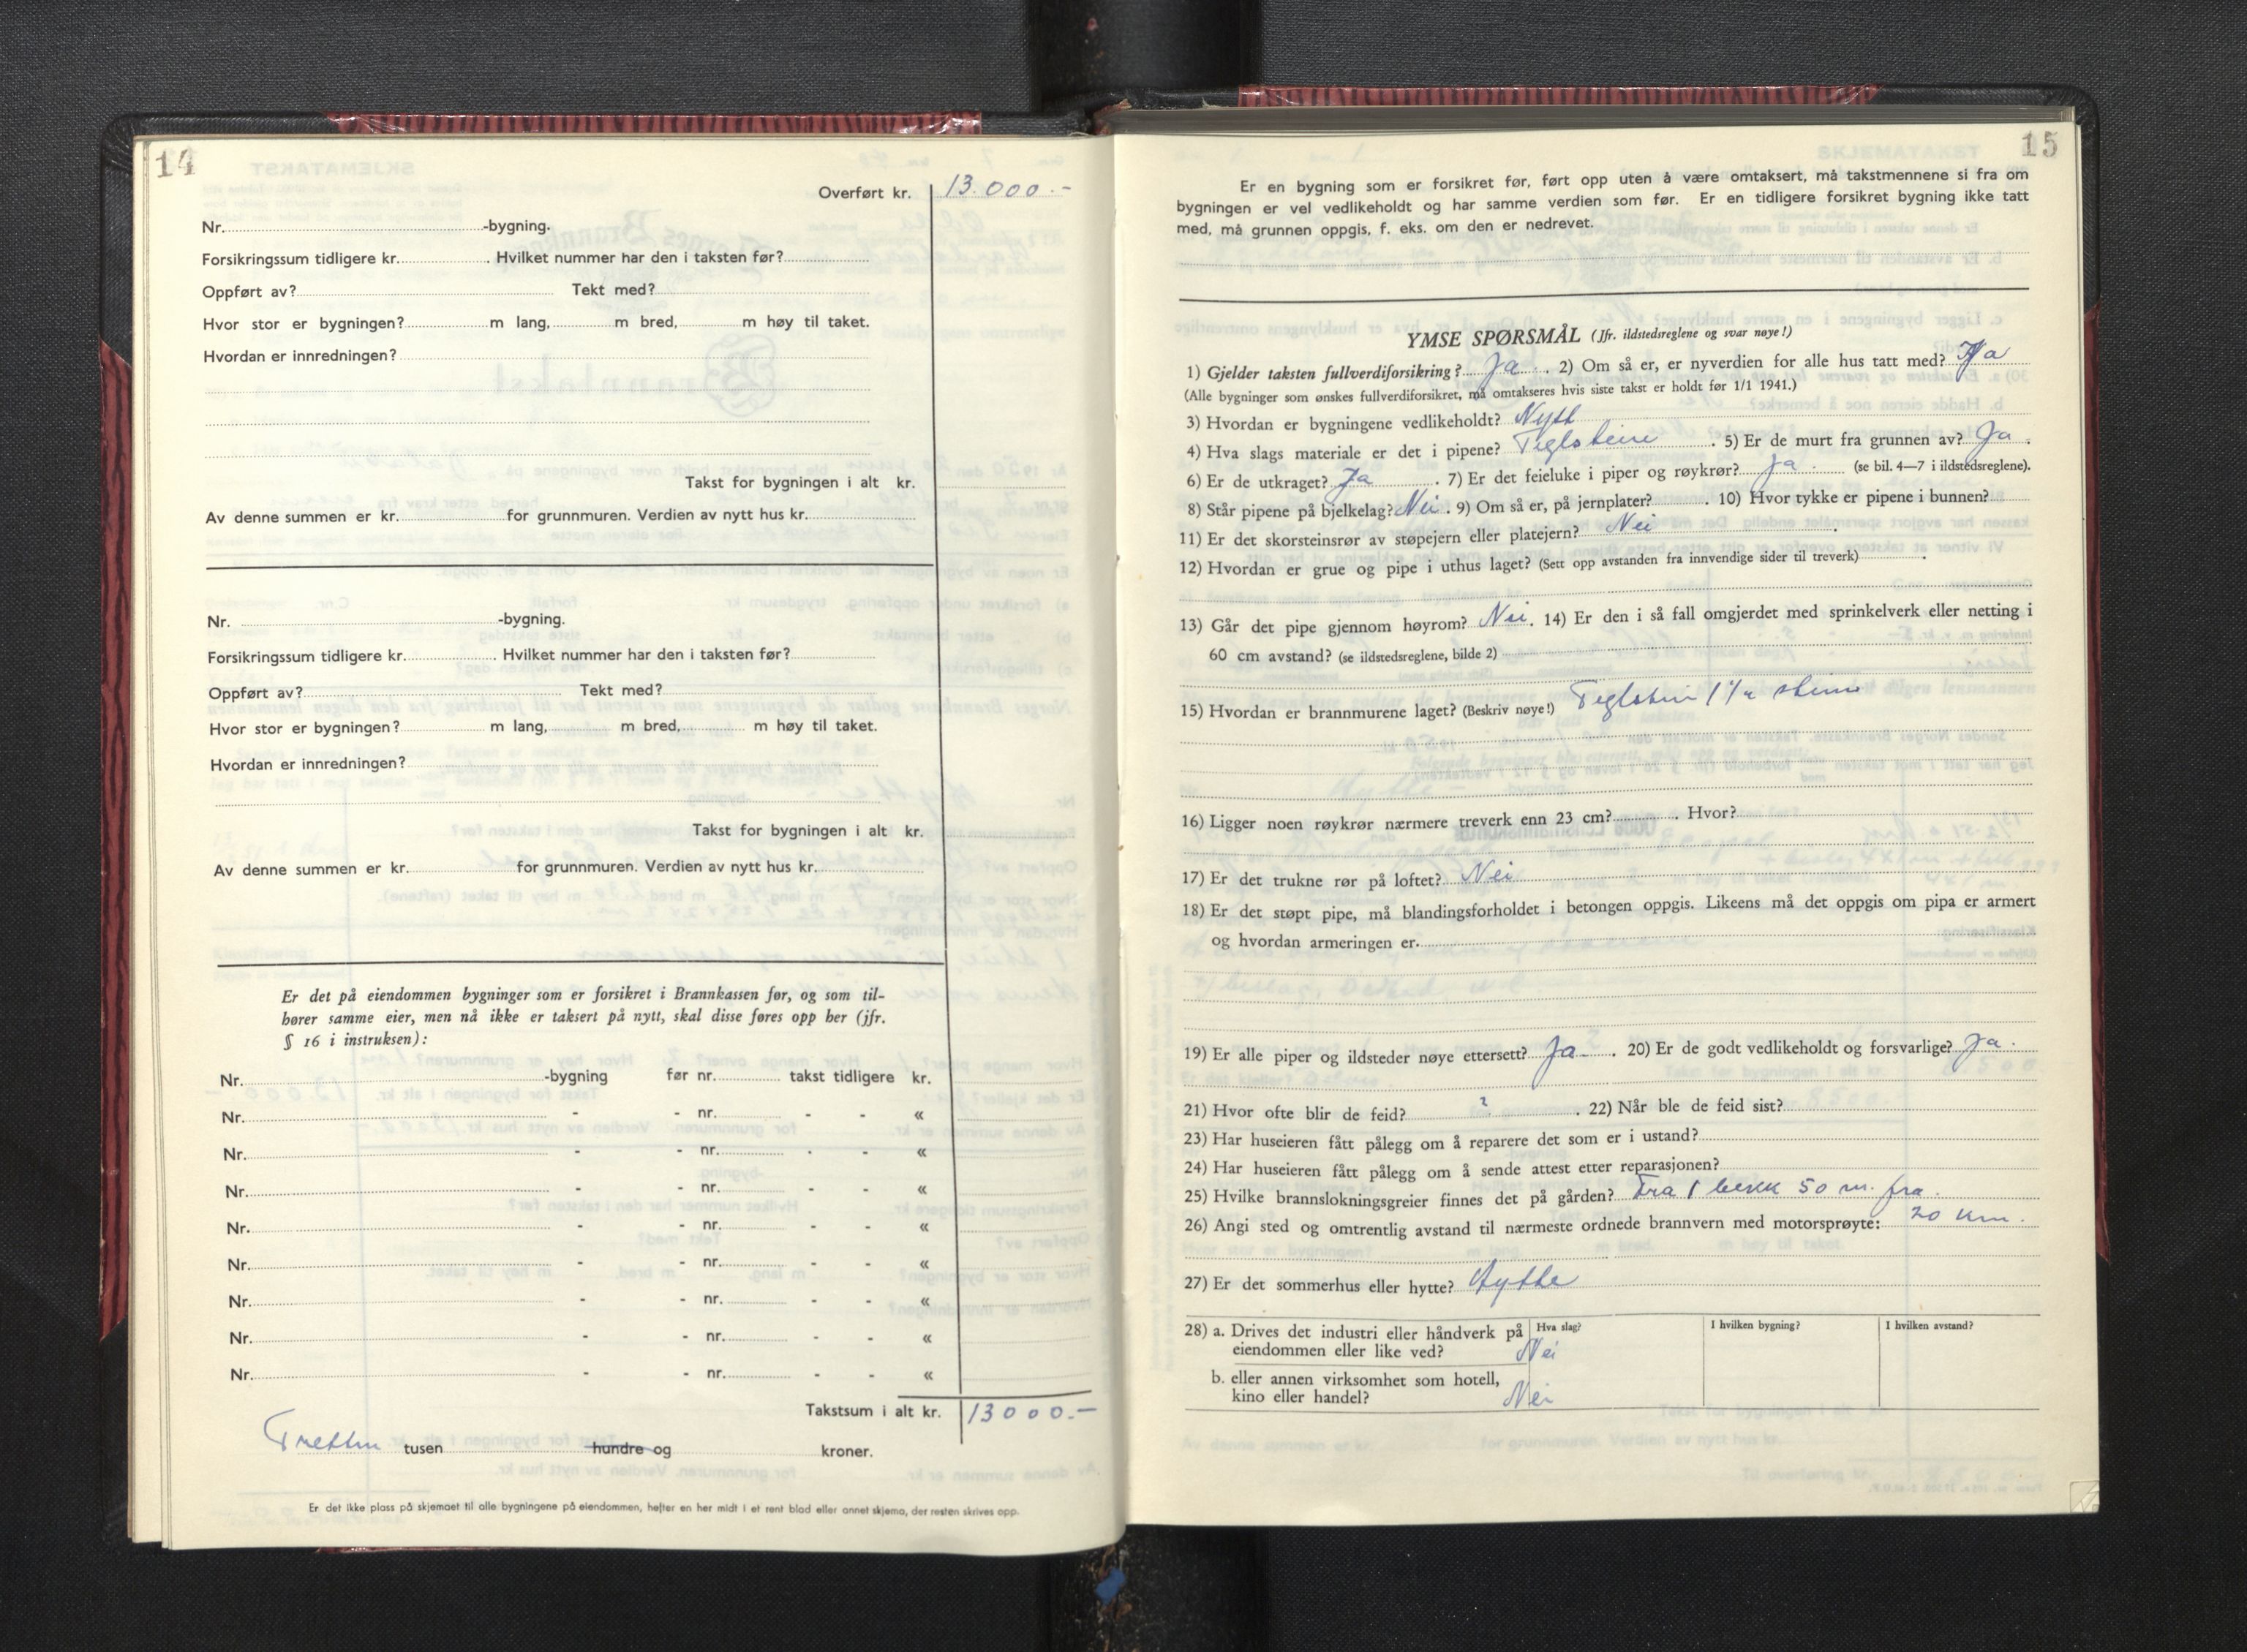 14
Overført kr. 13.000.-
Nr. -bygning.
Forsikringssum tidligere kr. . Hvilket nummer har den i taksten før?
Oppført av? Tekt med?
Hvor stor er bygningen? m lang, m bred, m høy til taket.
Hvordan er innredningen?
Takst for bygningen i alt kr.
Av denne summen er kr. for grunnmuren. Verdien av nytt hus kr.
Nr. -bygning.
Forsikringssum tidligere kr. . Hvilket nummer har den i taksten før?
Oppført av? Tekt med?
Hvor stor er bygningen? m lang, m bred, m høy til taket.
Hvordan er innredningen?
Takst for bygningen i alt kr.
Av denne summen er kr. for grunnmuren. Verdien av nytt hus kr.
Er det på eiendommen bygninger som er forsikret i Brannkassen før, og som til-
hører samme eier, men nå ikke er taksert på nytt, skal disse føres opp her (jfr.
§ 16 i instruksen):
Nr. -bygning før nr. takst tidligere kr.
Nr. - - nr. - - «
Nr. - - nr. - - «
Nr. - - nr. - - «
Nr. - - nr. - - «
Nr. - - nr. - - «
Nr. - - nr. - - «
Nr. - - nr. - - «
Nr. - - nr. - - «
Takstsum i alt kr. 13000.-
Tretten tusen hundre og kroner.
Er det ikke plass på skjemaet til alle bygningene på eiendommen, hefter en her midt i et rent blad eller annet skjema, der resten skrives opp.
15
Er en bygning som er forsikret før, ført opp uten å være omtaksert, må takstmennene si fra om
bygningen er vel vedlikeholdt og har samme verdien som før. Er en tidligere forsikret bygning ikke tatt
med, må grunnen oppgis, f. eks. om den er nedrevet.
YMSE SPØRSMÅL (Jfr. ildstedsreglene og svar nøye!)
1) Gjelder taksten fullverdiforsikring? Ja . 2) Om så er, er nyverdien for alle hus tatt med? Ja
(Alle bygninger som ønskes fullverdiforsikret, må omtakseres hvis siste takst er holdt før 1/1 1941.)
3) Hvordan er bygningene vedlikeholdt? Nytt
4) Hva slags materiale er det i pipene? Teglsteine . 5) Er de murt fra grunnen av? Ja .
6) Er de utkraget? Ja . 7) Er det feieluke i piper og røykrør? Ja . (se bil. 4—7 i ildstedsreglene).
8) Står pipene på bjelkelag? Nei . 9) Om så er, på jernplater? . 10) Hvor tykke er pipene i bunnen?
11) Er det skorsteinsrør av støpejern eller platejern? Nei .
12) Hvordan er grue og pipe i uthus laget? (Sett opp avstanden fra innvendige sider til treverk) .
13) Går det pipe gjennom høyrom? Nei . 14) Er den i så fall omgjerdet med sprinkelverk eller netting i
60 cm avstand? (se ildstedsreglene, bilde 2)
15) Hvordan er brannmurene laget? (Beskriv nøye!) Teglstein 1 1/2 steins
16) Ligger noen røykrør nærmere treverk enn 23 cm? . Hvor?
17) Er det trukne rør på loftet? Nei
18) Er det støpt pipe, må blandingsforholdet i betongen oppgis. Likeens må det oppgis om pipa er armert
og hvordan armeringen er.
19) Er alle piper og ildsteder nøye ettersett? Ja . 20) Er de godt vedlikeholdt og forsvarlige? Ja .
21) Hvor ofte blir de feid? ? . 22) Når ble de feid sist?
23) Har huseieren fått pålegg om å reparere det som er i ustand?
24) Har huseieren fått pålegg om å sende attest etter reparasjonen?
25) Hvilke brannslokningsgreier finnes det på gården? Fra 1 bekk 50 m. fra.
26) Angi sted og omtrentlig avstand til nærmeste ordnede brannvern med motorsprøyte: 20 km.
27) Er det sommerhus eller hytte? Hytte
28) a. Drives det industri eller håndverk på Hva slag? I hvilken bygning? I hvilken avstand?
eiendommen eller like ved? Nei
b. eller annen virksomhet som hotell,
kino eller handel? Nei